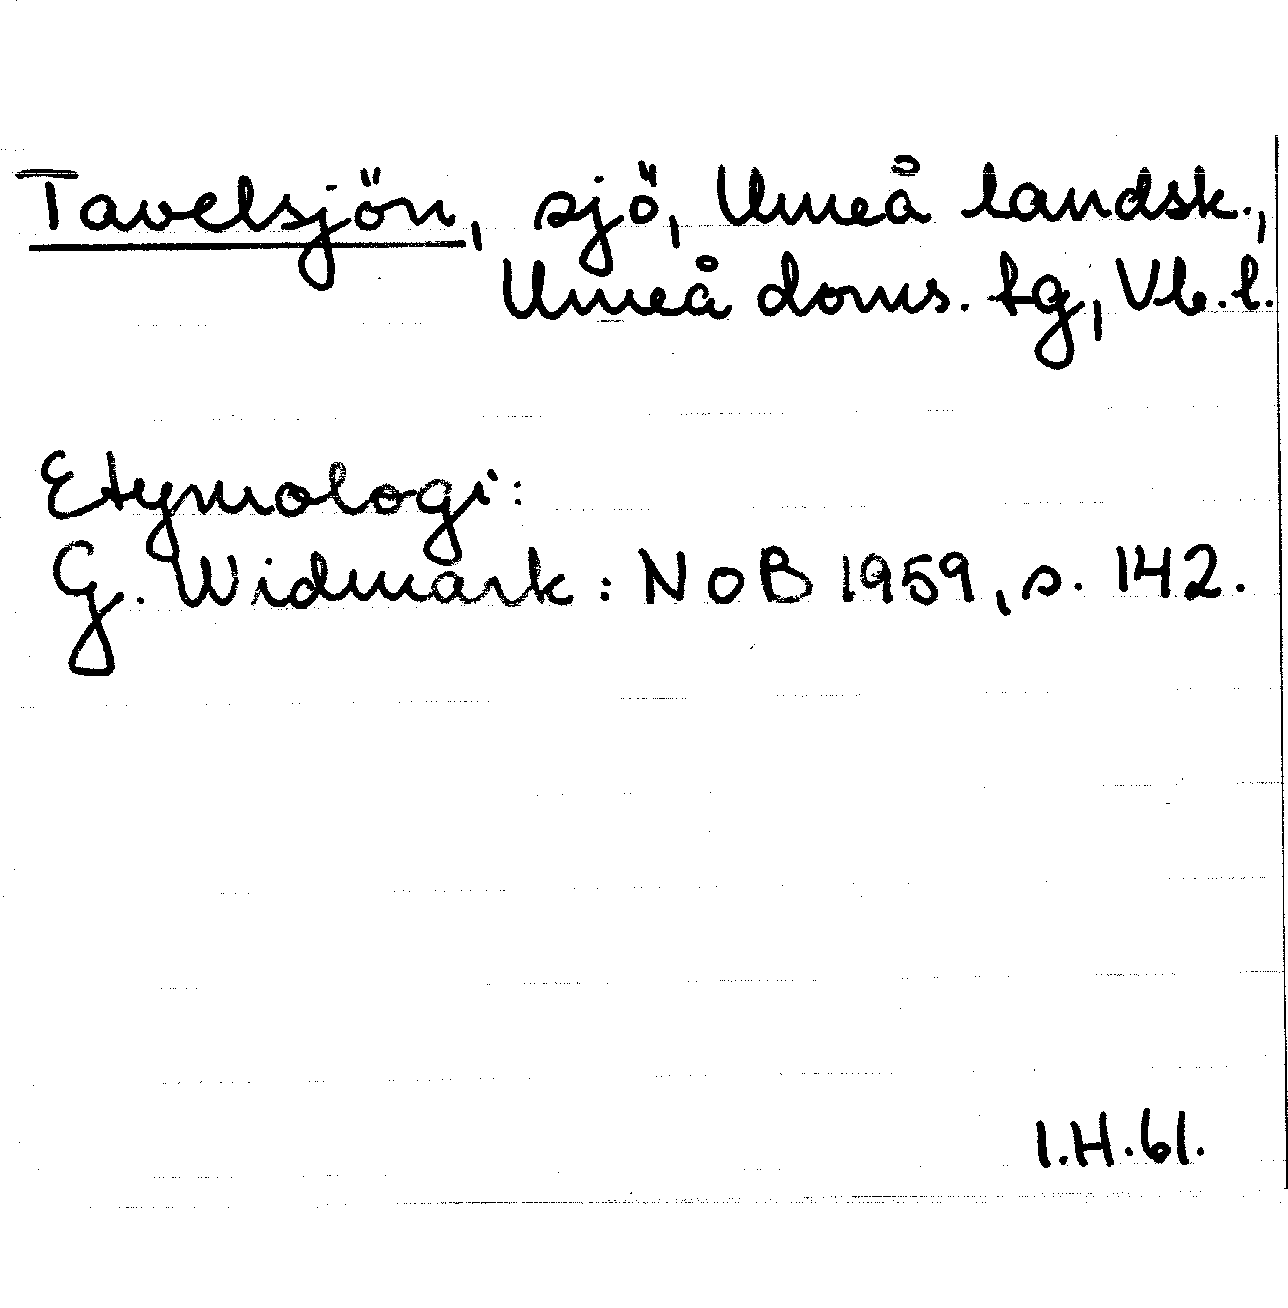 Tavelsjön, sjö, Umeå landsk.,
Umeå doms. tg, Vb. l.
Etymologi:
G. Widmark: NoB 1959, s. 142.
I.H.61.